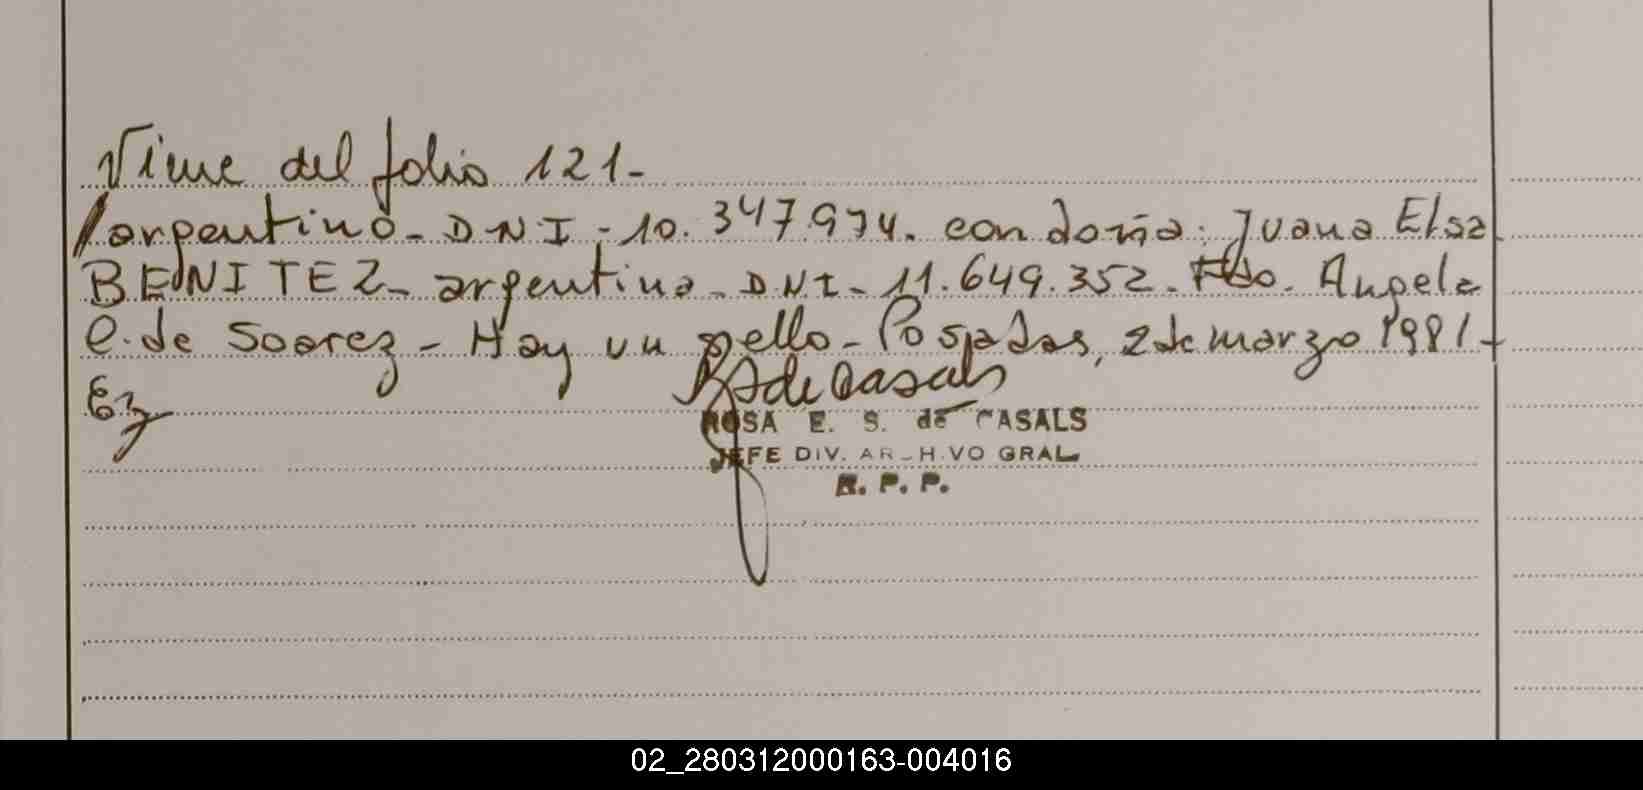 Viene del folio 121-
/argentino- DNI - 10.347.974. con doña: Juana Elsa
BENITEZ- argentina- DNI- 11.649.352. Fdo. Angela
C. de Soarez - Hay un sello- Posadas, 2 de marzo 1981-
Ez
RS de Casals
ROSA E. S. de CASALS
JEFE DIV. ARCHIVO GRAL.
R. P. P.
02_280312000163-004016